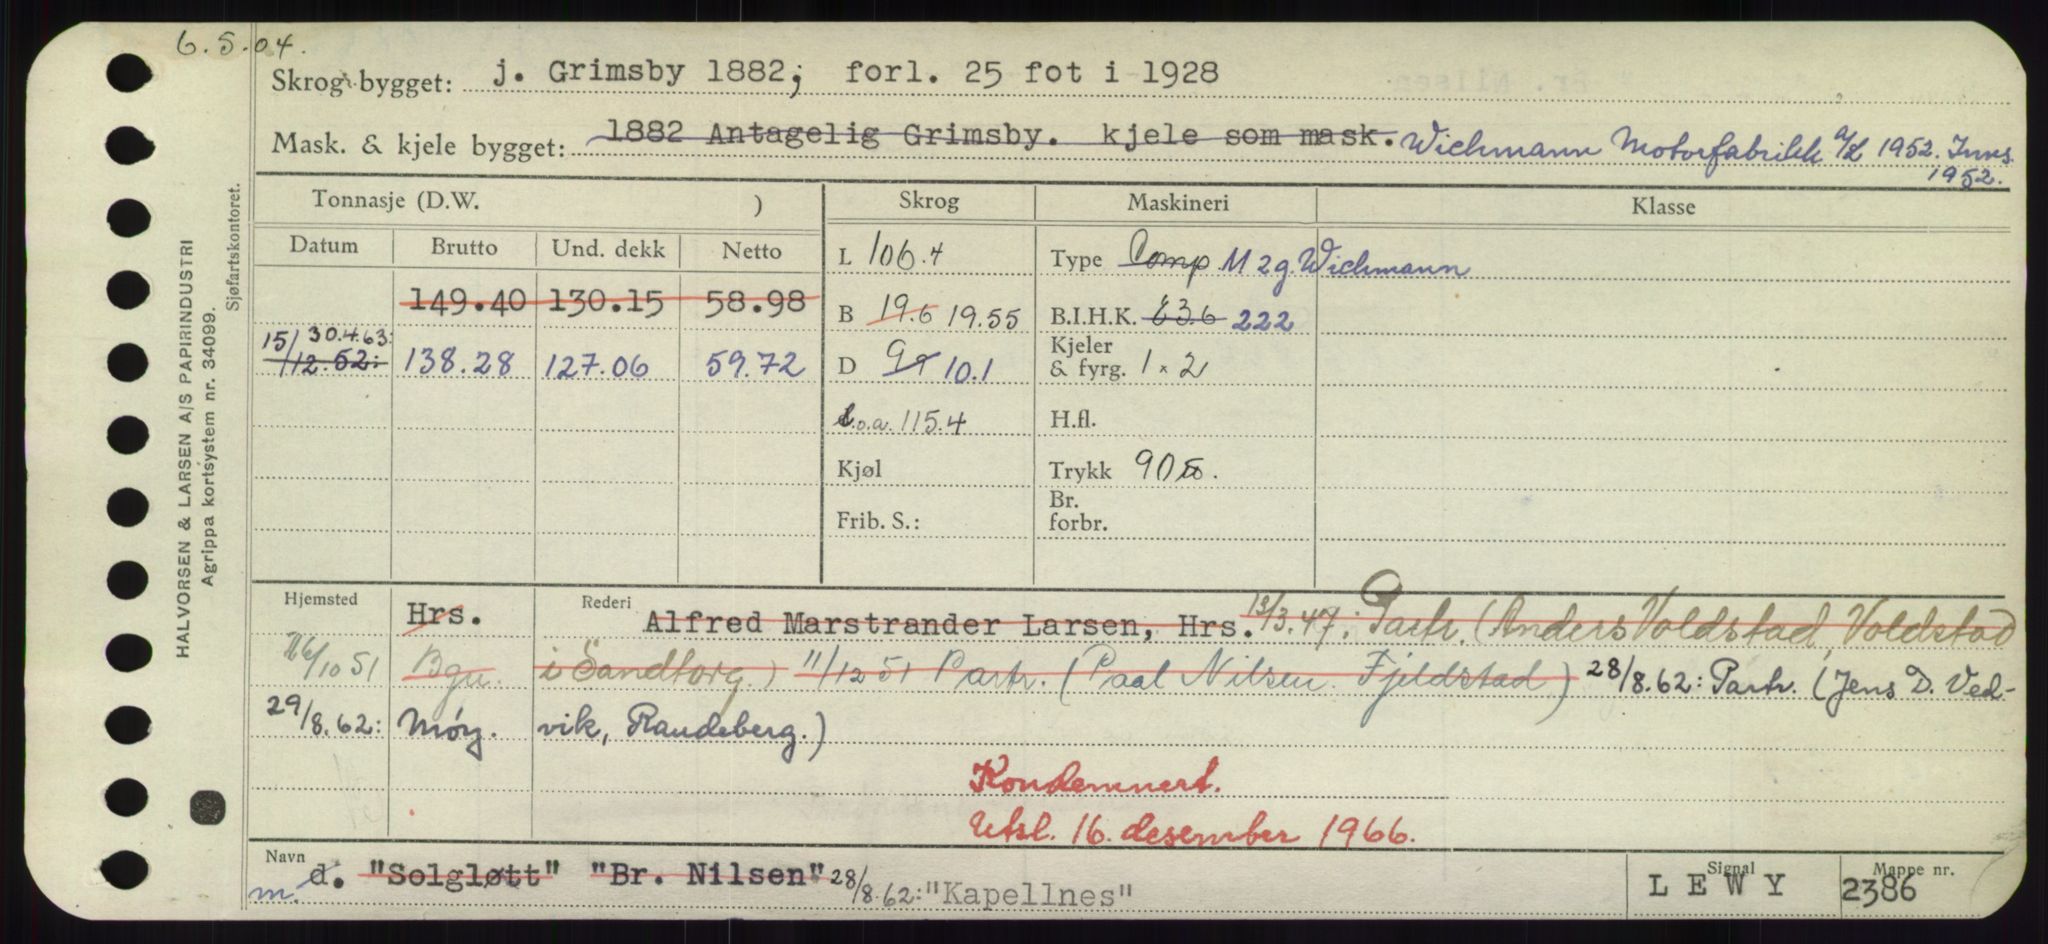 6.5.04.
Skrog bygget: j. Grimsby 1882; forl. 25 fot i 1928
Mask. & kjele bygget: 1882 Antagelig Grimsby. kjele som mask. Wichmann Motorfabrikk A/L 1952. Inns. 1952.
Tonnasje (D.W. ) Skrog Maskineri Klasse
Datum Brutto Und. dekk Netto L 106.4 Type Comp M 2 g. Wichmann
149.40 130.15 58.98 B 19.6 19.55 B.I.H.K. 222
15/12.52: 30.4.63: 138.28 127.06 59.72 D 10.1 Kjeler & fyrg. 1 × 2
L.o.a. 115.4 H.fl.
Kjøl Trykk 90
Frib. S.: Br. forbr.
Hjemsted Hrs. Rederi Alfred Marstrander Larsen, Hrs. 13/3.47: Partr. (Anders Voldstad, Voldstad
26/10 51 Bgn. i Sandtorg.) 11/12 51 Partr. (Paal Nilsen Fjeldstad) 28/8.62: Partr. (Jens D. Ved-
29/8.62: Móry. vik, Raudeberg.)
Kondemnert.
Utsl. 16. desember 1966.
Navn Signal Mappe nr.
m. d. "Solgløtt" "Br. Nilsen" 28/8.62: "Kapellnes" LEWY 2386
HALVORSEN & LARSEN A/S PAPIRINDUSTRI
Agrippa kortsystem nr. 34099.
Sjøfartskontoret.